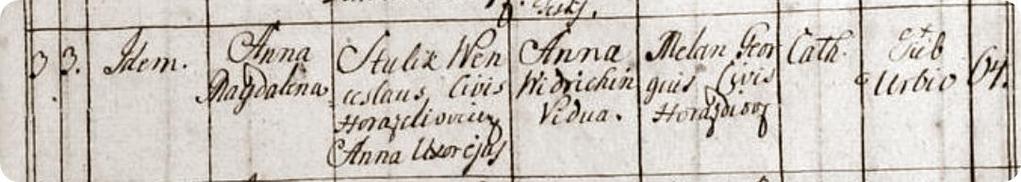 3 3. Idem. Anna Magdalena Stulik Wen
ceslaus Civis
Horazdiovicen
Anna Uxor ejus
Anna
Widrichin
Vidua.
Melan Geor
gius Civis
Horazdiov
Cath. et Sub
Urbio 64.